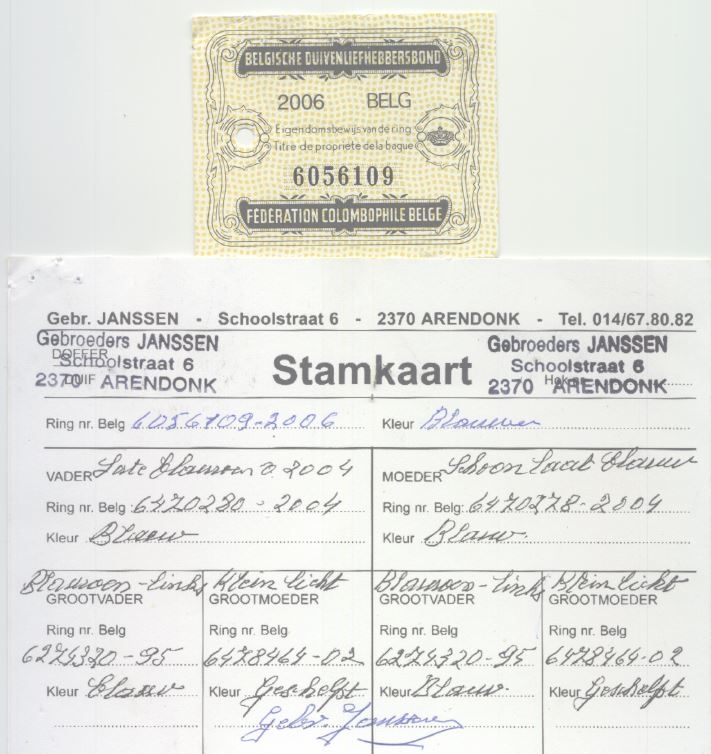 BELGISCHE DUIVENLIEFHEBBERSBOND
2006 BELG
Eigendomsbewijs van de ring
Titre de propriété de la bague
6056109
FÉDÉRATION COLOMBOPHILE BELGE
Gebr. JANSSEN - Schoolstraat 6 - 2370 ARENDONK - Tel. 014/67.80.82
Gebroeders JANSSEN
DOFFER
Schoolstraat 6
DUIF
2370 ARENDONK
Stamkaart
Gebroeders JANSSEN
Schoolstraat 6
Hok nr.
2370 ARENDONK
Ring nr. Belg 6056109-2006 Kleur Blauwe
VADER Late 2004 MOEDER Schoon Laat Blauw
Ring nr. Belg 6470280-2004 Ring nr. Belg: 6470278-2004
Kleur Blauw Kleur Blauw.
Links Klein licht Links Klein licht
GROOTVADER GROOTMOEDER GROOTVADER GROOTMOEDER
Ring nr. Belg Ring nr. Belg Ring nr. Belg Ring nr. Belg
6274320-95 6478464-02 6274320-95 6478464-02
Kleur Blauw Kleur Geschelpt Kleur Blauw. Kleur Geschelpt
Gebr. Janssen